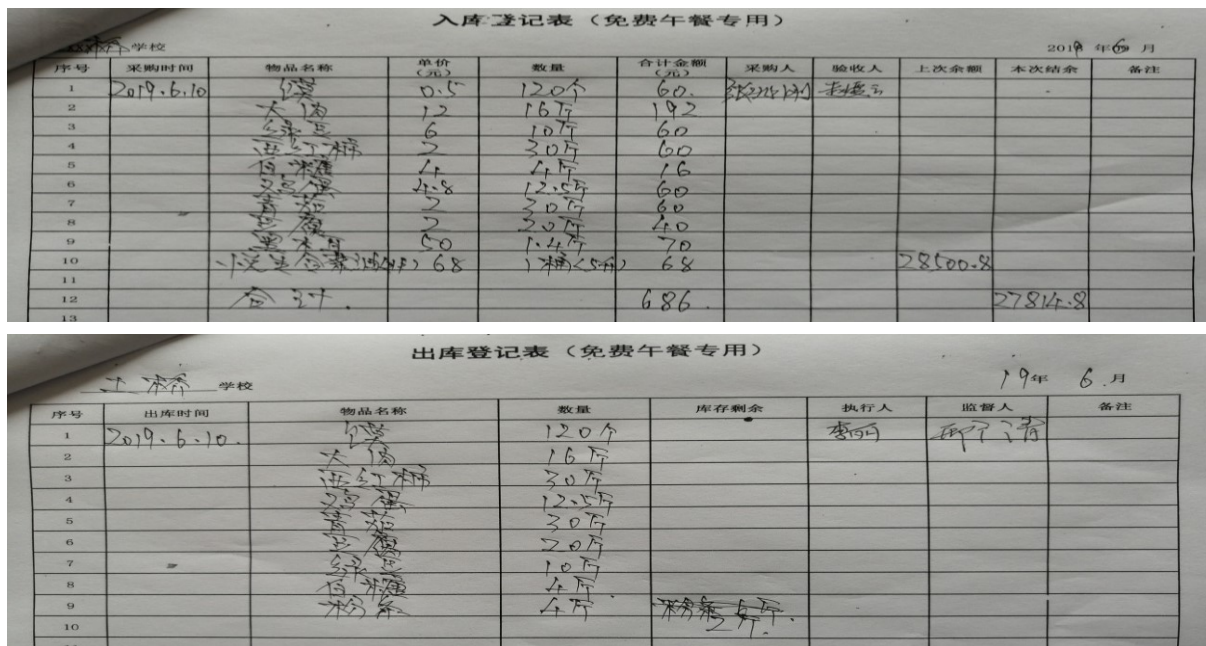 入库登记表（免费午餐专用）
桥 学校 2019 年 6 月
序号 采购时间 物品名称 单价（元） 数量 合计金额（元） 采购人 验收人 上次余额 本次结余 备注
1 2019.6.10 馍 0.5 120个 60.
2 大肉 12 16斤 192
3 绿豆 6 10斤 60
4 西红柿 2 30斤 60
5 白糖 4 4斤 16
6 鸡蛋 4.8 12.5斤 60
7 青茄 2 30斤 60
8 豆腐 2 20斤 40
9 黑木耳 50 1.4斤 70
10 68 1桶(5升) 68 28500.8
11
12 合计. 686. 27814.8
13
出库登记表（免费午餐专用）
土桥 学校 19年 6.月
序号 出库时间 物品名称 数量 库存剩余 执行人 监督人 备注
1 2019.6.10. 馍 120个 李丽
2 大肉 16斤
3 西红柿 30斤
4 鸡蛋 12.5斤
5 青茄 30斤
6 豆腐 20斤
7 绿豆 10斤
8 白糖 4斤
9 粉条 4斤 2斤.
10